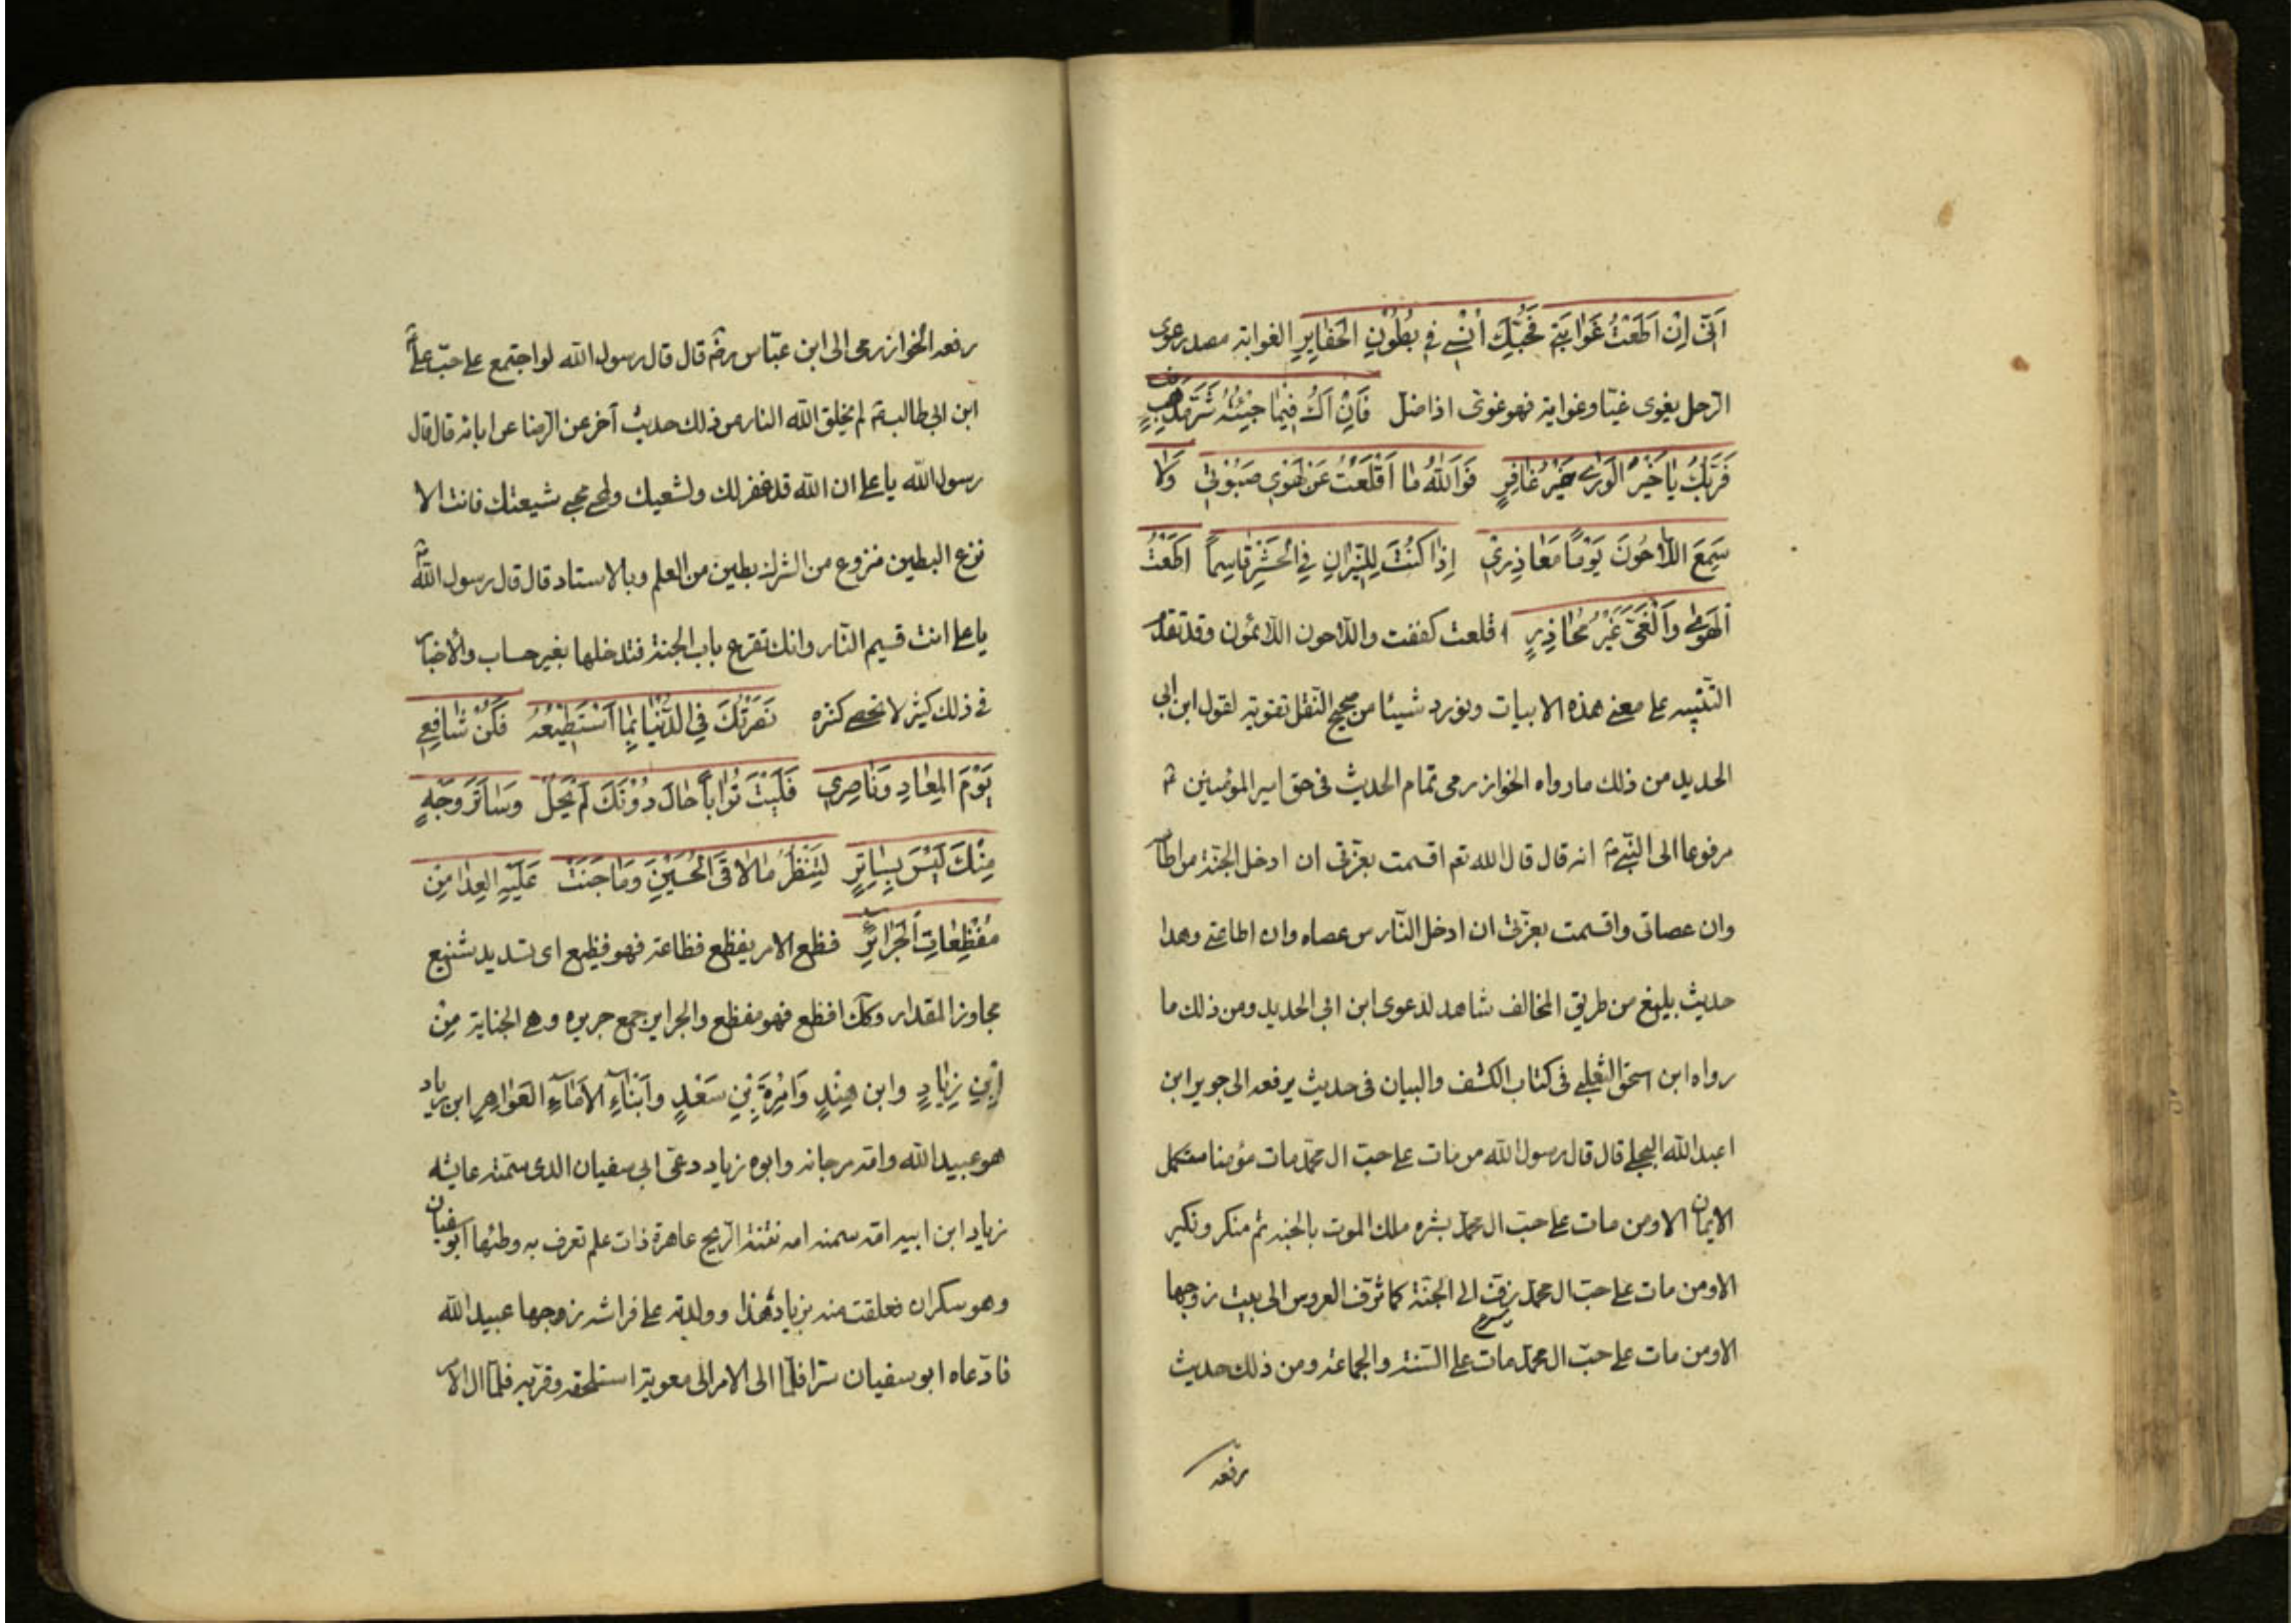 اَنّي اِنْ اَطَعْتُ غَوايَتي فَحُبُّكَ اُنْسي في بُطُوْنِ الحَفايِرِ الغواية مصدر غوى
الرّجل يغوى غيّا وغواية فهو غوىّ اذا ضلّ فَاِنْ اَكُ فيما جِئْتُهُ شَرَّ مُذْنِبٍ
فَرَبُّكَ يا خَيْرَ الوَرى خَيْرُ غافِرٍ فَوَاللهِ ما اَقْلَعْتُ عَنْ لَهْوِي صَبْوَتي وَلا
سَمِعَ اللّاحُونَ يَوْمًا مَعاذِرِيْ اِذا كُنْتَ لِلنّيرانِ في الحَشْرِ قاسِماً اَطَعْتُ
الهَوى وَالغَيَّ غَيْرَ مُحاذِرٍ اقلعت كففت واللاحون اللائمون وقد تقدّم
التّنبيه على معنى هذه الابيات ونورد شيئا من صحيح النّقل تقوية لقول ابن ابي
الحديد من ذلك ما رواه الخوارزمى تمام الحديث فى حق امير المؤمنين ع
مرفوعا الى النّبي ص انه قال قال الله تعم اقسمت بعزّتى ان ادخل الجنّة من اطاعه
وان عصانى واقسمت بعزّتى ان ادخل النّار من عصاه وان اطاعني وهذا
حديث بليغ من طريق المخالف شاهد لدعوى ابن ابى الحديد ومن ذلك ما
رواه ابن اسحق الثعلبى فى كتاب الكشف والبيان فى حديث يرفعه الى جوير ابن
اعبد الله البجلى قال قال رسول الله من مات على حبّ ال محمّد مات مؤمنا مستكمل
الايمان الا ومن مات على حبّ ال محمّد بشره ملك الموت بالجنه ثم منكر ونكير
الا ومن مات على حبّ ال محمّد يزفّ الى الجنّة كما تزفّ العروس الى بيت زوجها
الا ومن مات على حبّ ال محمّد مات على السّنة والجماعة ومن ذلك حديث
رفعه
رفعه الخوارزمى الى ابن عبّاس رض قال قال رسول الله لو اجتمع على حبّ علي
ابن ابي طالب ع لم يخلق الله النار من ذلك حديث آخر عن الرّضا عن ابائه قال قال
رسول الله يا على ان الله قد غفر لك ولشعيك ولمحبي محبي شيعتك فانت الا
نزع البطين منزوع من الشرك بطين من العلم وبالاسناد قال قال رسول الله ص
يا على انت قسيم النّار وانك تقرع باب الجنة فتدخلها بغير حساب والاخبار
فى ذلك كثير لا تحصى كثره نَصَرْتُكَ فِي الدُّنْيا بِما اَسْتَطِيْعُهُ فَكُنْ شافِعِي
يَوْمَ المِعادِ وَناصِرِي فَلَيْتَ تُراباً حالَ دُوْنَكَ لَمْ يَحُلْ وَساتَرَ وَجْهٍ
مِنْكَ لَيْسَ بِساتِرٍ لِتَنْظُرَ ما لاقَى الحُسَيْنَ وَما جَنَتْ عَلَيْهِ العِدا مِن
مُفْظِعاتِ الجَرائِرِ فظع الامر يفظع فظاعة فهو فظيع اى شديد شنيع
مجاوز المقدار وكك افظع فهو مفظع والجراير جمع جريره وهى الجناية مِنْ
اِبْنِ زِيادٍ وابن هِنْدٍ وَامْرَةِ بْنِ سَعْدٍ وَاَبْناءِ الاِماءِ العَواهِرِ ابن زياد
هو عبيد الله وامّه مرجانه وابوه زياد دعىّ ابى سفيان الذى سمّته عايشه
زياد ابن ابيه امّه سمنه امه نتنة الرّيح عاهرة ذات علم تعرف به وطئها ابو سفيان
وهو سكران فعلقت منه بزياد هذا وولدته على فراش زوجها عبيد الله
فادّعاه ابو سفيان سرّا فلمّا الى الامر الى معوية استلحقه وقرّبه فلمّا ال الامر